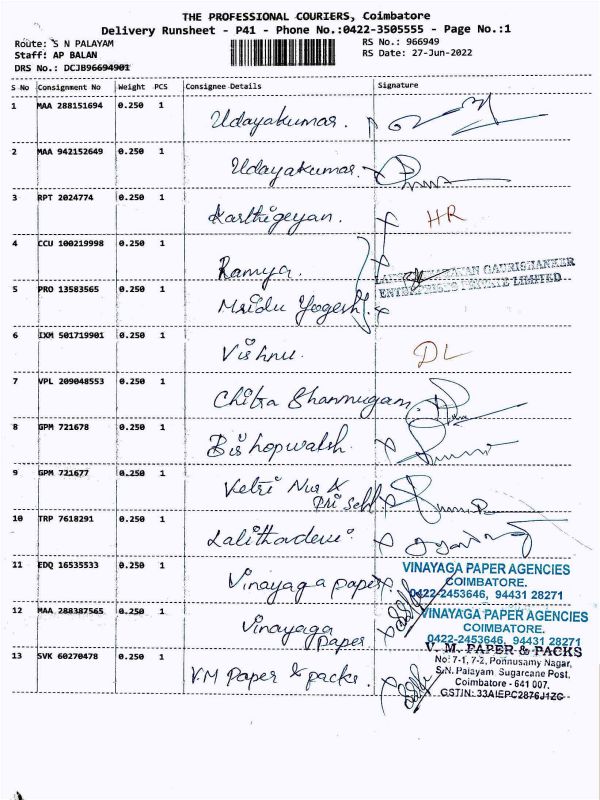 THE PROFESSIONAL COURIERS, Coimbatore
Delivery Runsheet - P41 - Phone No.:0422-3505555 - Page No.:1
Route: S N PALAYAM
RS No.: 966949
Staff: AP BALAN
RS Date: 27-Jun-2022
DRS No.: DCJB96694901
S No Consignment No Weight PCS Consignee Details Signature
1 MAA 288151694 0.250 1 Udayakumar.
2 MAA 942152649 0.250 1 Udayakumar.
3 RPT 2024774 0.250 1 Karthigeyan. HR
4 CCU 100219998 0.250 1 Ramya.
GAURISHANKER
ENTERPRISES PRIVATE LIMITED
5 PRO 13583565 0.250 1 Mridu Yogesh.
6 IXM 501719901 0.250 1 Vishnu. DL
7 VPL 209048553 0.250 1 Chitra Shanmugam.
8 GPM 721678 0.250 1 Bishopwalsh.
9 GPM 721677 0.250 1 Vetri Nur &
Pri Sch
10 TRP 7618291 0.250 1 Lalithadevi
11 EDQ 16535533 0.250 1 Vinayaga paper
VINAYAGA PAPER AGENCIES
COIMBATORE.
0422-2453646, 94431 28271
12 MAA 288387565 0.250 1 Vinayaga
paper
VINAYAGA PAPER AGENCIES
COIMBATORE.
0422-2453646, 94431 28271
13 SVK 60270478 0.250 1 V.M Paper & packs.
V. M. PAPER & PACKS
No: 7-1, 7-2, Ponnusamy Nagar,
S.N. Palayam, Sugarcane Post,
Coimbatore - 641 007.
GSTIN: 33AIEPC2876J1ZG